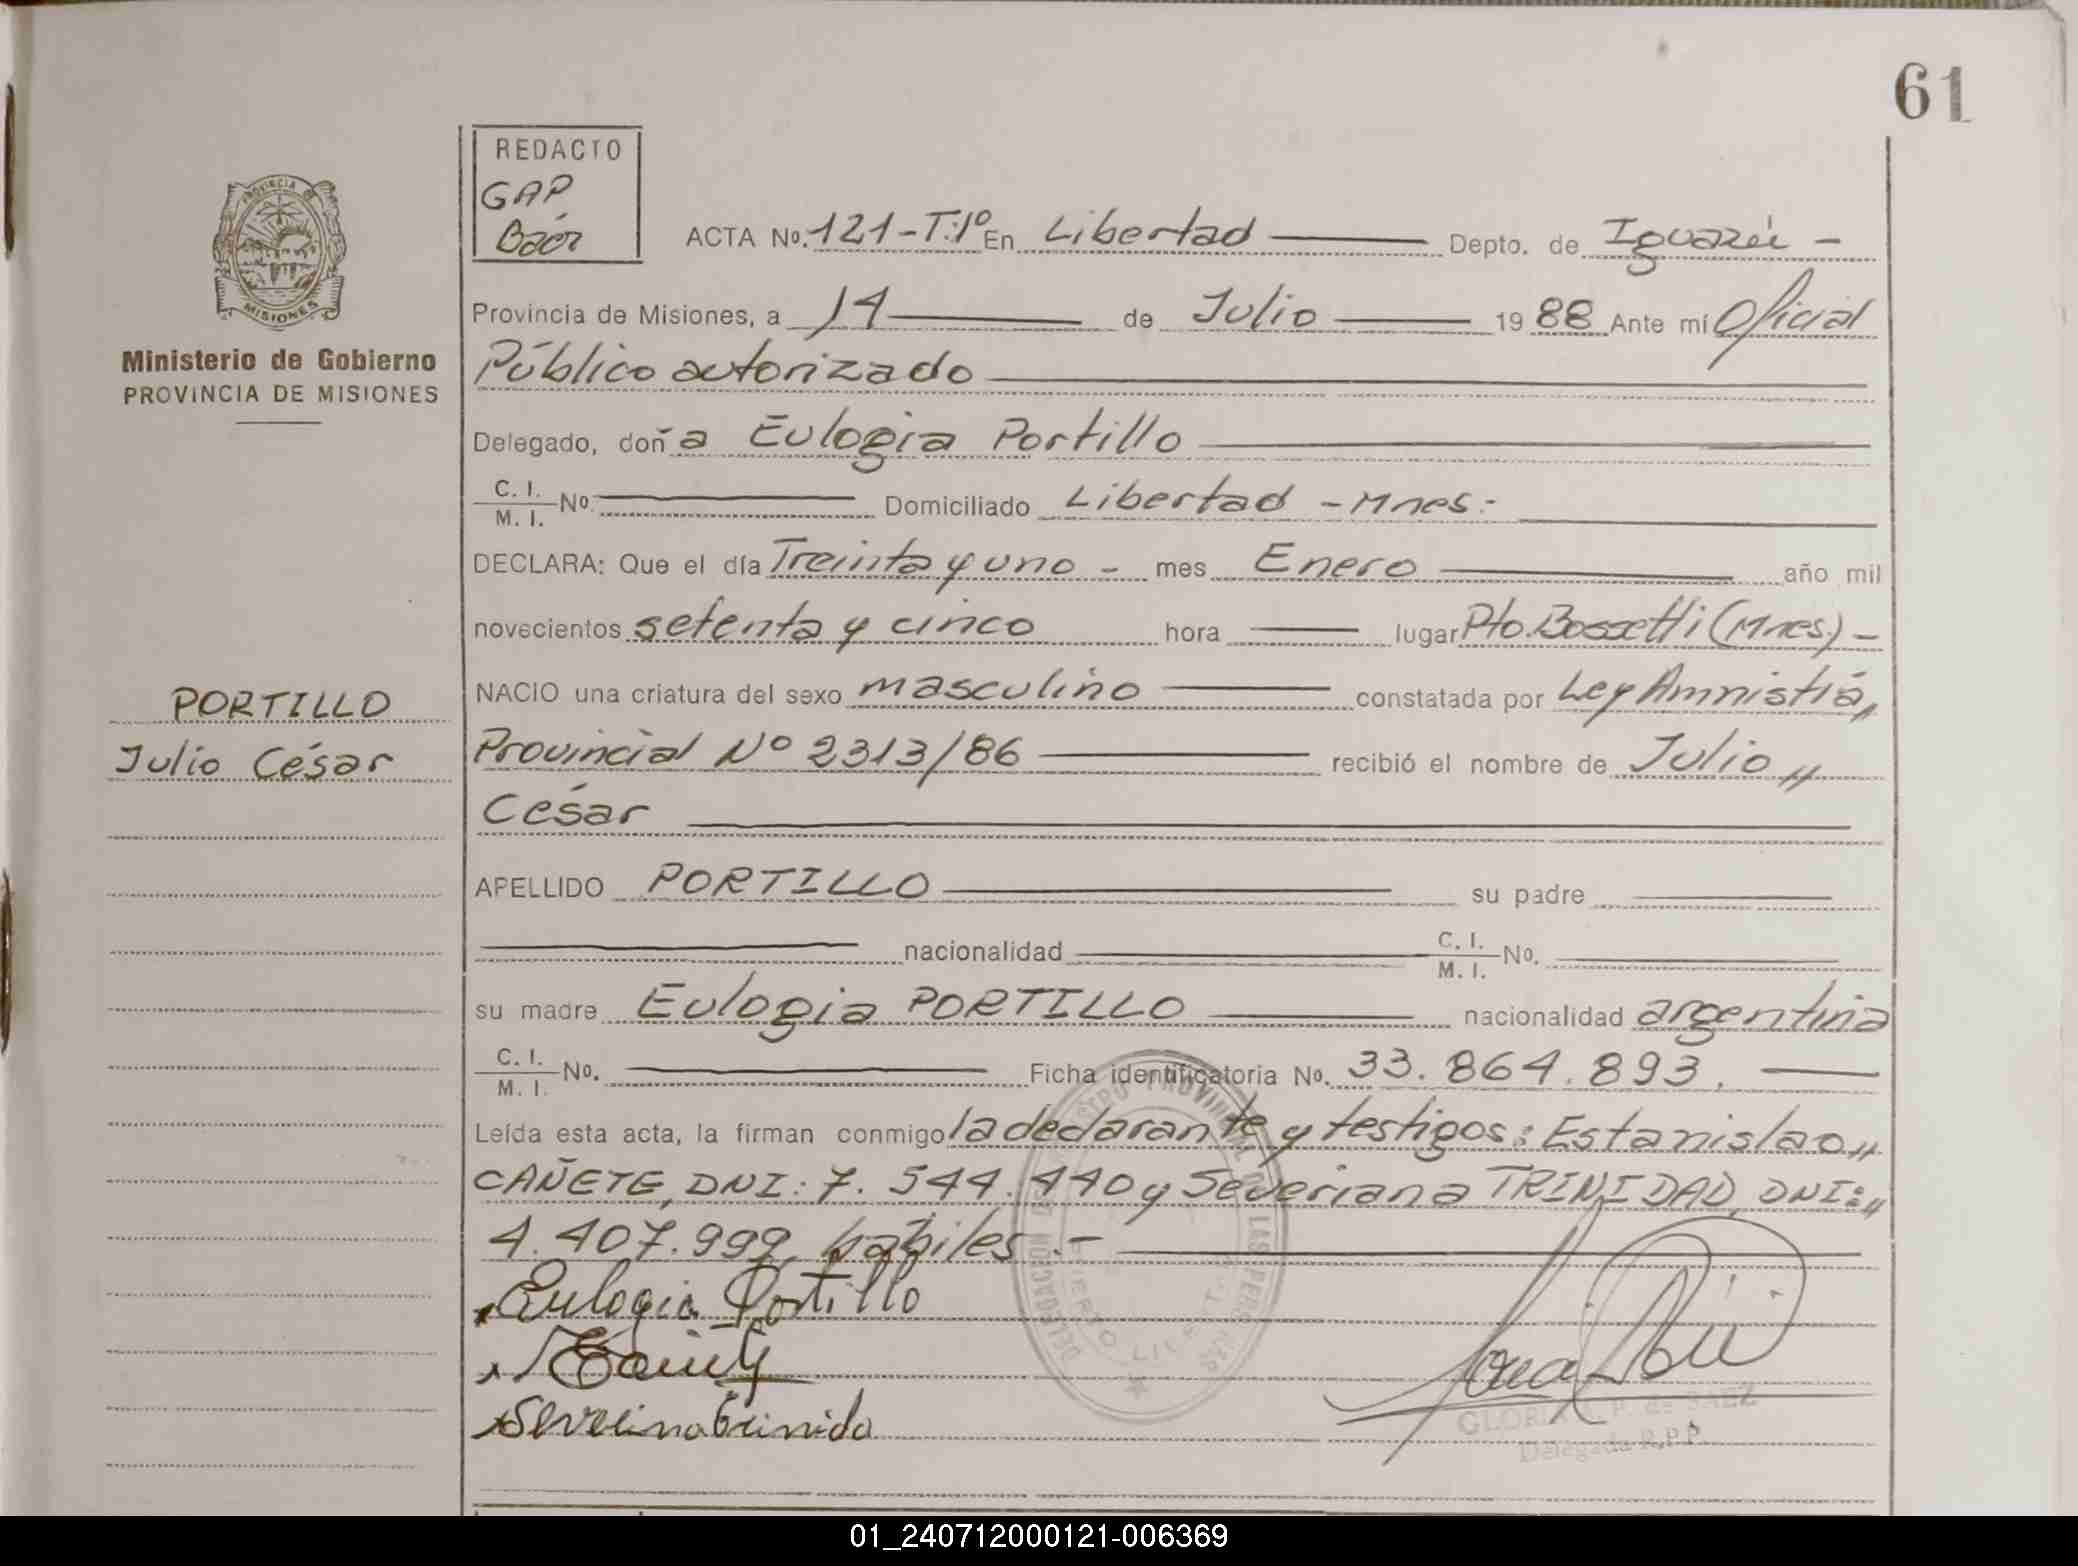 61
REDACTO
GAP
ACTA No. 121-T:1º En Libertad Depto. de Iguazú -
PROVINCIA DE
MISIONES
Provincia de Misiones, a 14 de Julio 1988 Ante mí Oficial
Ministerio de Gobierno
PROVINCIA DE MISIONES
Público autorizado
Delegado, doña Eulogia Portillo
C. I.
M. I. No. Domiciliado Libertad - Mnes.-
DECLARA: Que el día Treinta y uno - mes Enero año mil
novecientos setenta y cinco hora lugar Pto. Bossetti (Mnes.) -
PORTILLO
Julio César
NACIO una criatura del sexo masculino constatada por Ley Amnistía,,
Provincial Nº 2313/86 recibió el nombre de Julio,,
César
APELLIDO PORTILLO su padre
nacionalidad C. I.
M. I. No.
su madre Eulogia PORTILLO nacionalidad argentina
C. I.
M. I. No. Ficha identificatoria No. 33.864.893.
Leída esta acta, la firman conmigo la declarante y testigos: Estanislao,,
CAÑETE, DNI: 7.544.440 y Severiana TRINIDAD, DNI:,,
4.407.999, hábiles.-
Eulogia Portillo
GLORIA A. P. de SAEZ
Delegada R.P.P.
01_240712000121-006369